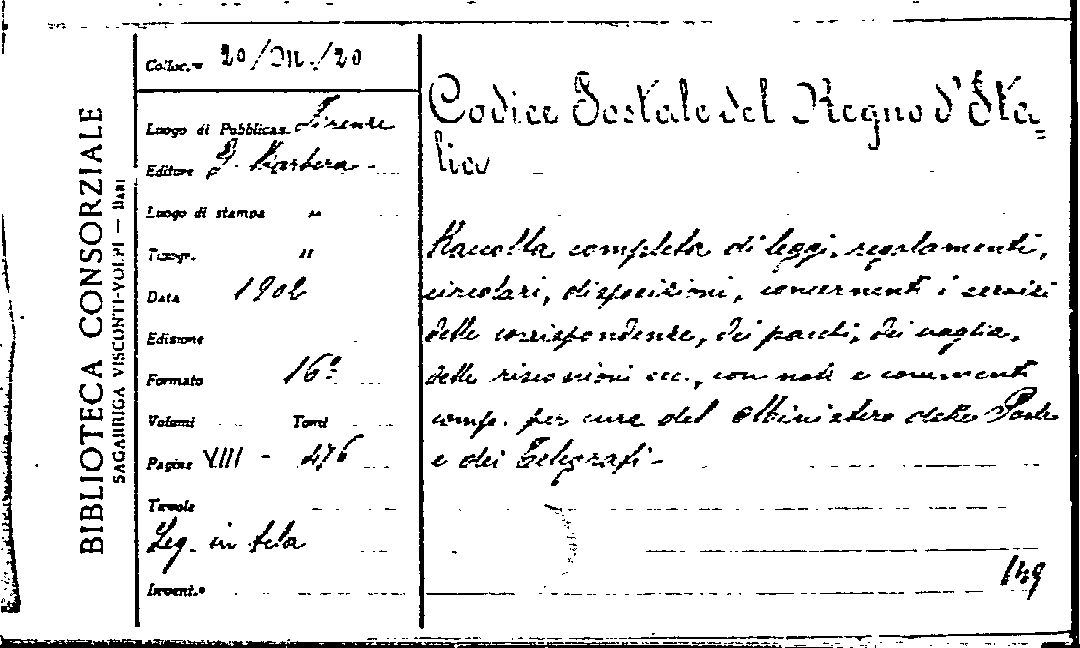 BIBLIOTECA CONSORZIALE
SAGARRIGA VISCONTI-VOLPI — BARI
Colloc.ne 20/M./20
Luogo di Pubblicaz. Firenze
Editore G. Barbera -
Luogo di stampa "
Tipogr. "
Data 1902
Edizione
Formato 16°
Volumi Tomi
Pagine VIII - 476
Tavole
Leg. in tela
Invent.o
Codice Postale del Regno d'Ita=
lia
Raccolta completa di leggi, regolamenti,
circolari, disposizioni, concernenti i servizi
delle corrispondenze, dei pacchi, dei vaglia,
delle riscossioni ecc., con note e commenti
comp. per cura del Ministero delle Poste
e dei Telegrafi -
149